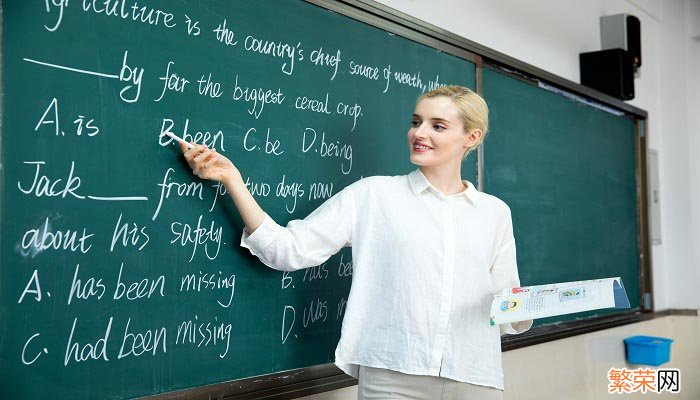 Agriculture is the country's chief source of wealth,
____by far the biggest cereal crop.
A.is B.been C.be D.being
Jack____from for two days now,
about his safety.
A. has been missing B. has been
C. had been missing D. was mis
繁荣网